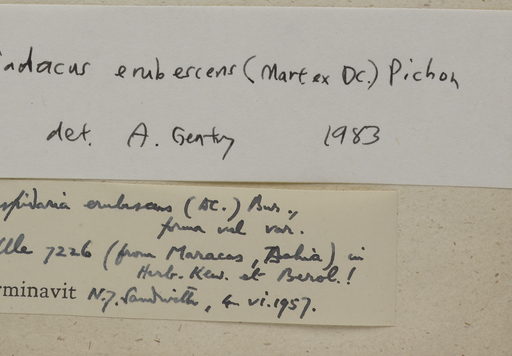 indacus erubescens (Mart ex DC.) Pichon
det. A. Gentry 1983
spidaria erubescens (DC.) Bur.,
forma vel var.
Ule 7226 (from Maracas, Bahia) in
Herb. Kew. et Berol.!
rminavit N.Y. Sandwith, 4 vi.1957.